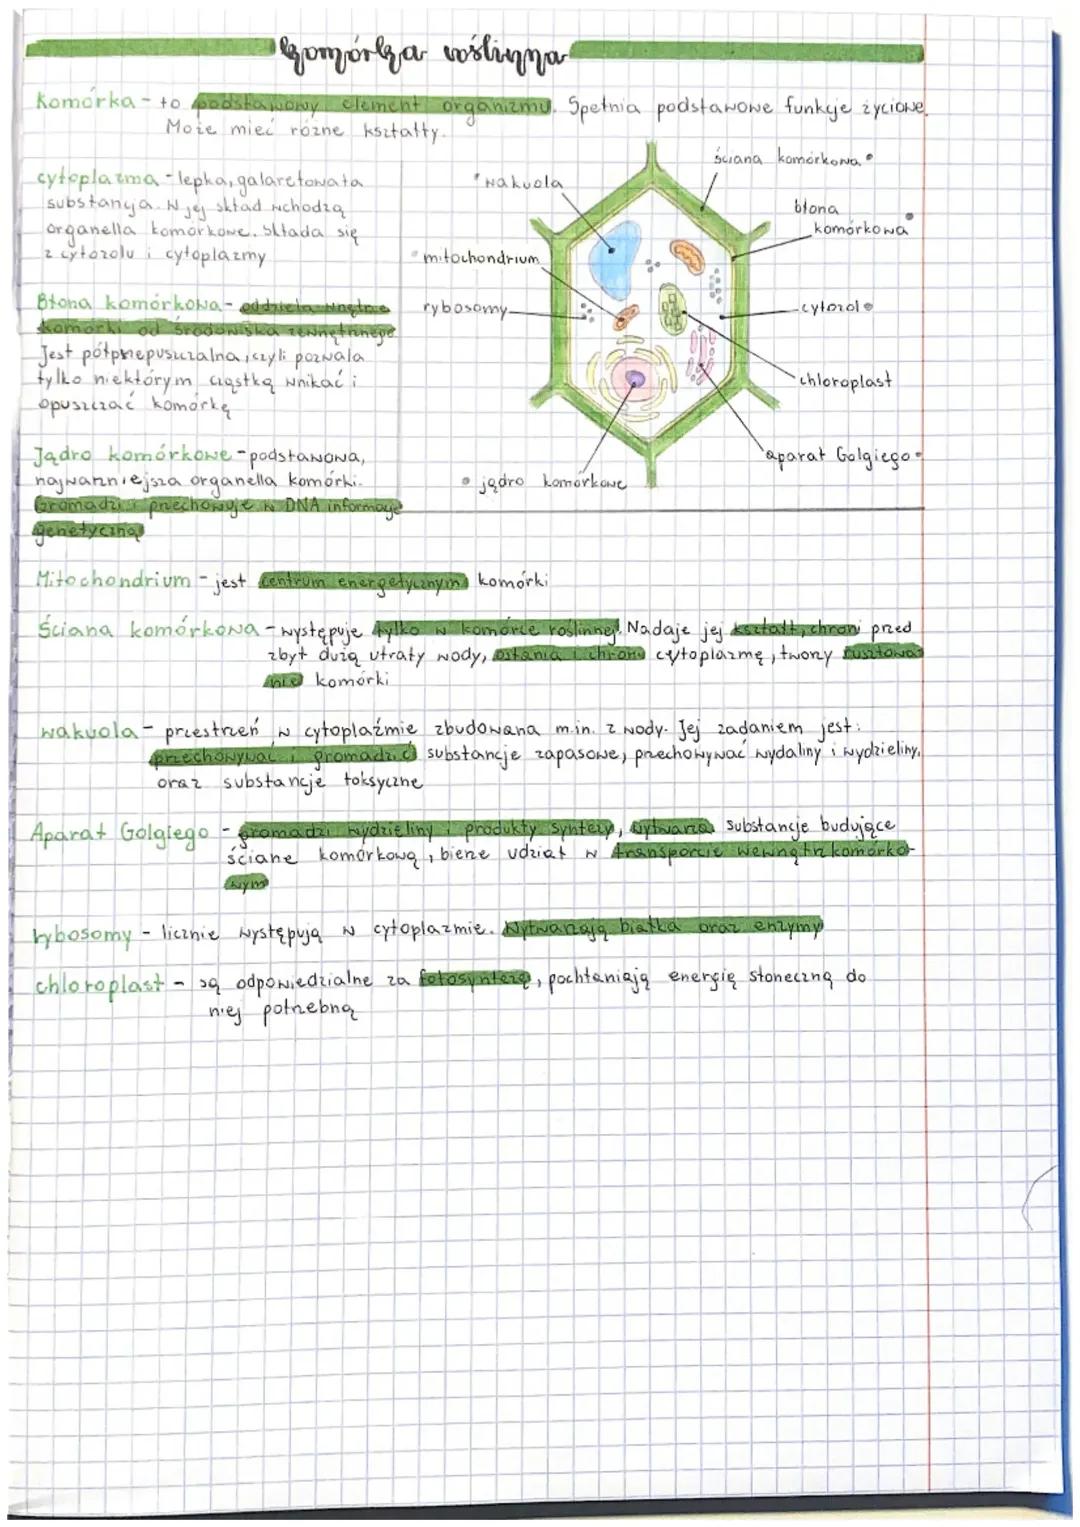 komórka roślinna
Komórka - to podstawowy element organizmu. Spełnia podstawowe funkcje życiowe.
Może mieć różne kształty.
cytoplazma - lepka, galaretowata
substancja. W jej skład wchodzą
organella komórkowe. Składa się
z cytozolu i cytoplazmy
Błona komórkowa - oddziela wnętrze
komórki od środowiska zewnętrznego
Jest półprzepuszczalna, czyli pozwala
tylko niektórym cząstką wnikać i
opuszczać komórkę
Jądro komórkowe - podstawowa,
najważniejsza organella komórki.
Gromadzi i przechowuje w DNA informacje
genetyczną
wakuola
mitochondrium
rybosomy
jądro komórkowe
ściana komórkowa
błona
komórkowa
cytozol
chloroplast
aparat Golgiego
Mitochondrium - jest centrum energetycznym komórki
Ściana komórkowa - występuje tylko w komórce roślinnej. Nadaje jej kształt, chroni przed
zbyt dużą utraty wody, osłania i chroni cytoplazmę, tworzy rusztowa
nie komórki
wakuola - przestrzeń w cytoplaźmie zbudowana m.in. z wody. Jej zadaniem jest:
przechowywać i gromadzić substancje zapasowe, przechowywać wydaliny i wydzieliny,
oraz substancje toksyczne
Aparat Golgiego - gromadzi wydzieliny i produkty syntezy, wytwarza substancje budujące
ściane komórkową, bierze udział w transporcie wewnątrzkomórko-
wym
rybosomy - licznie występują w cytoplazmie. Wytwarzają białka oraz enzymy
chloroplast - są odpowiedzialne za fotosyntezę, pochłaniają energię słoneczną do
niej potrzebną